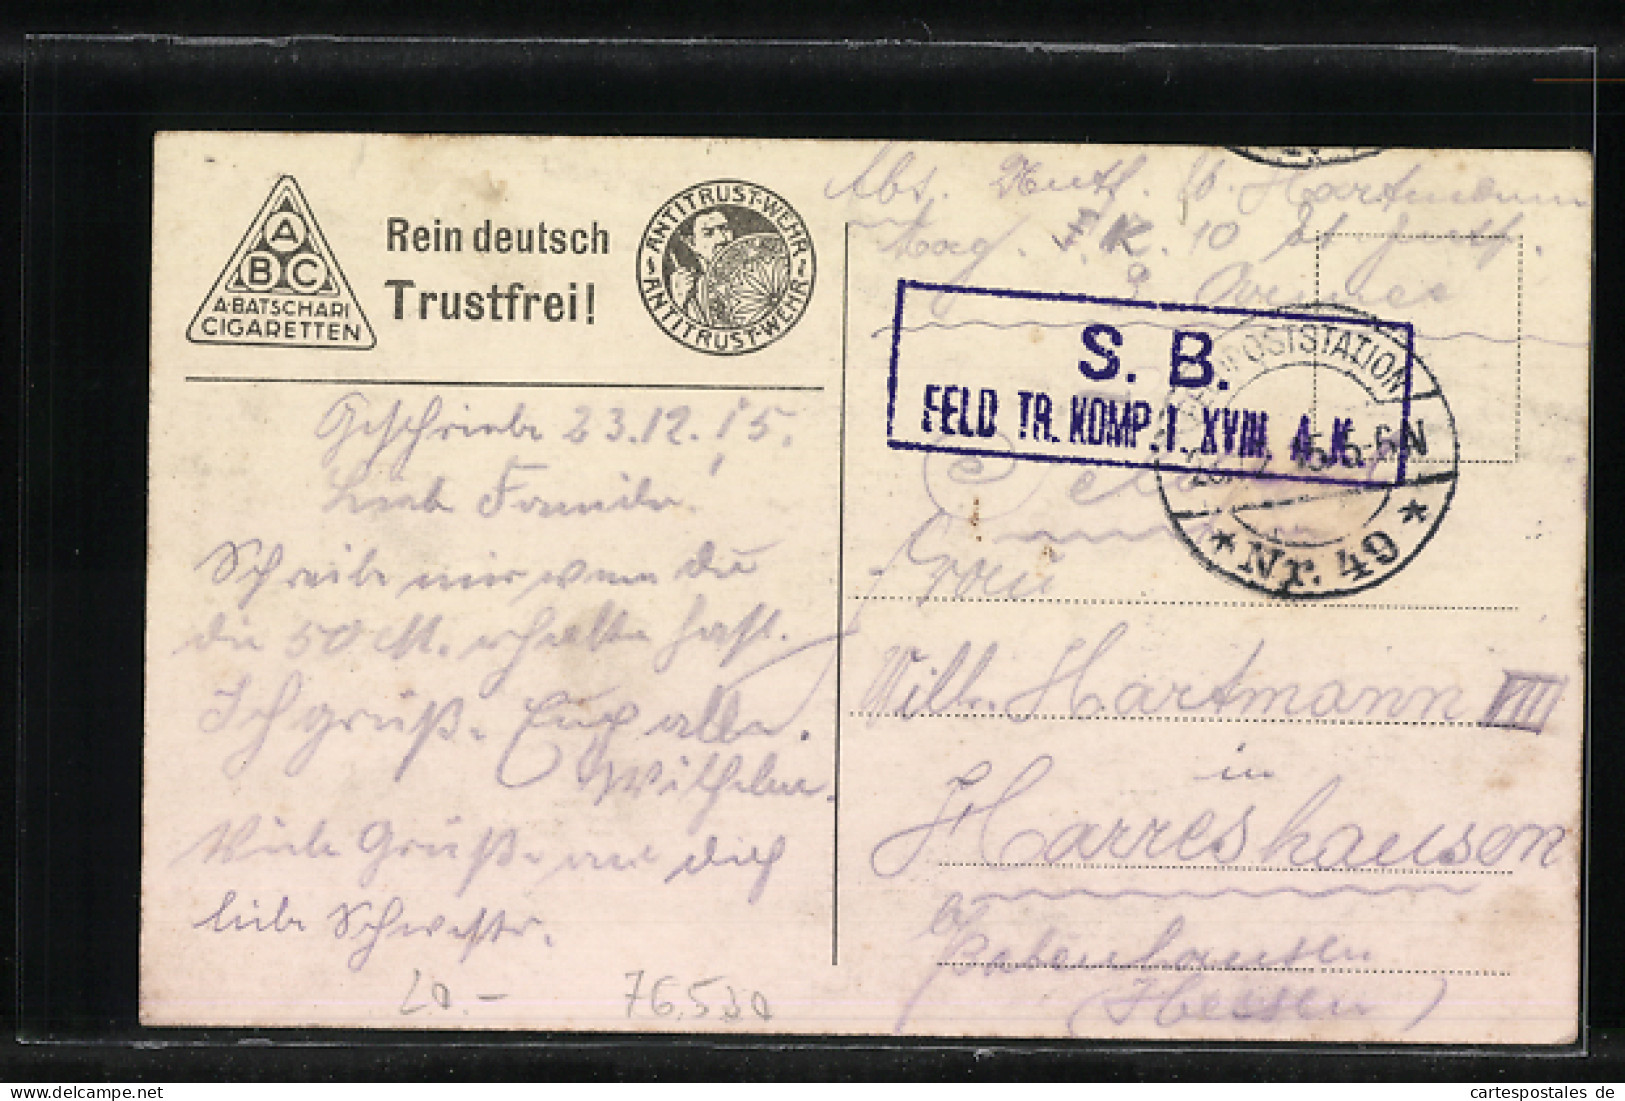 A
B C
A·BATSCHARI
CIGARETTEN
Rein deutsch
Trustfrei!
ANTITRUST-WEHR
ANTITRUST-WEHR
Geschrieben 23.12.15.
Liebe Familie!
Schreibe mir wenn du
die 50 M. erhalten hast.
Ich grüße Euch alle.
Wilhelm.
Viele Grüße an dich
liebe Schwester.
20.-
76.530
Abs. W. Hartmann
F.K. 10
S. B.
FELD TR. KOMP. 1. XVIII. A.K.
POSTSTATION
15 5-6 N
* Nr. 49 *
Frau
Wilh. Hartmann VIII
in
Harreshausen
b/
Babenhausen
(Hessen)
cartespostales de